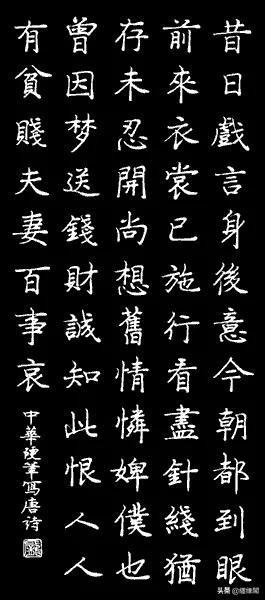 昔日戲言身後意今朝都到眼
前來衣裳已施行看盡針綫猶
存未忍開尚想舊情憐婢僕也
曾因梦送錢財誠知此恨人人
有貧賤夫妻百事哀
中華硬筆寫唐诗
头条